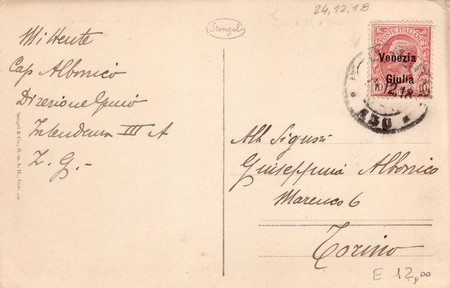 24.12.18
Stengel
POSTE ITALIANE
Venezia
Giulia
10
12.18
130
Mittente
Cap Albonico
Direzione Genio
Intendenza III A
Z. G.-
Alla Signora
Giuseppina Albonico
Marenco 6
Torino
E 12,00